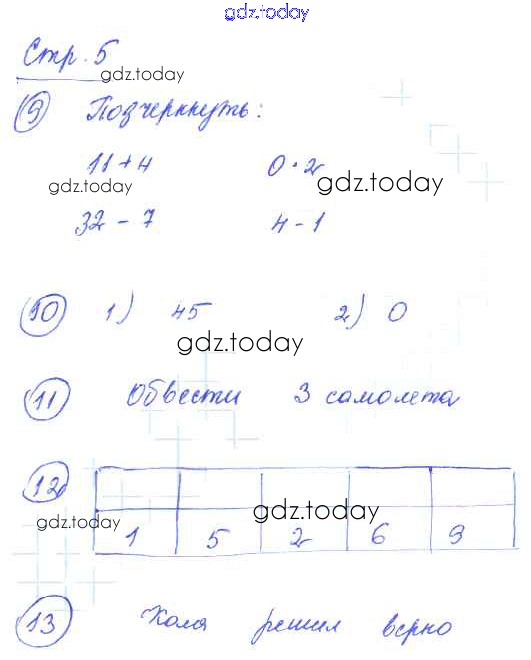 gdz.today
Стр. 5
gdz.today
9 Подчеркнуть:
11 + 4 0 · 2
gdz.today gdz.today
32 - 7 4 - 1
10 1) 45 2) 0
gdz.today
11 Обвести 3 самолета
12
gdz.today gdz.today
1 5 2 6 9
13 Коля решил верно